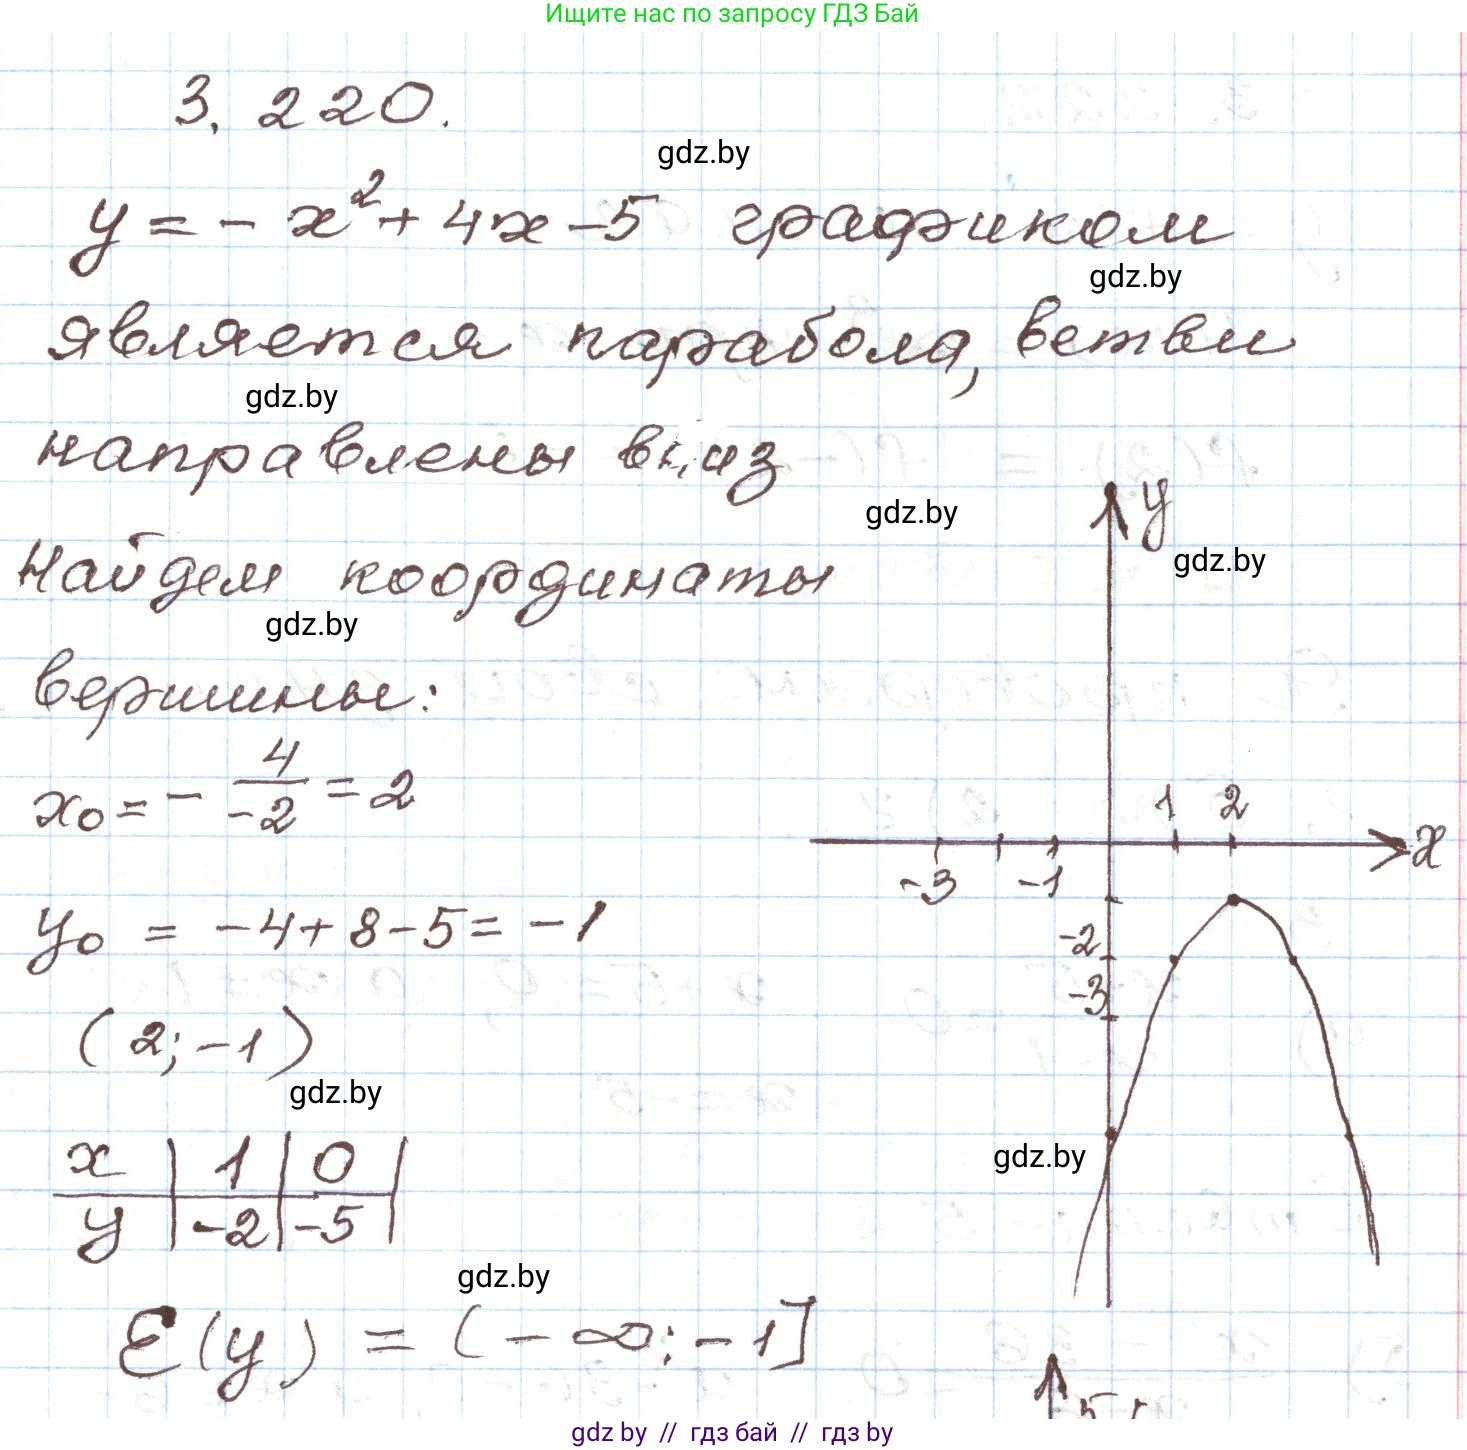 Ищите нас по запросу ГДЗ Бай
3. 220.
gdz.by
y = - x² + 4x - 5 графиком
gdz.by
является парабола, ветви
gdz.by
направлены вниз
gdz.by
y
gdz.by
Найдем координаты
gdz.by
вершины:
x₀ = - 4/-2 = 2
1 2
x
-3 -1
y₀ = -4 + 8 - 5 = -1
-2
-3
(2; -1)
gdz.by
gdz.by
x | 1 | 0 |
y | -2 | -5 |
gdz.by
E(y) = (-∞; -1]
gdz by // гдз бай // гдз by